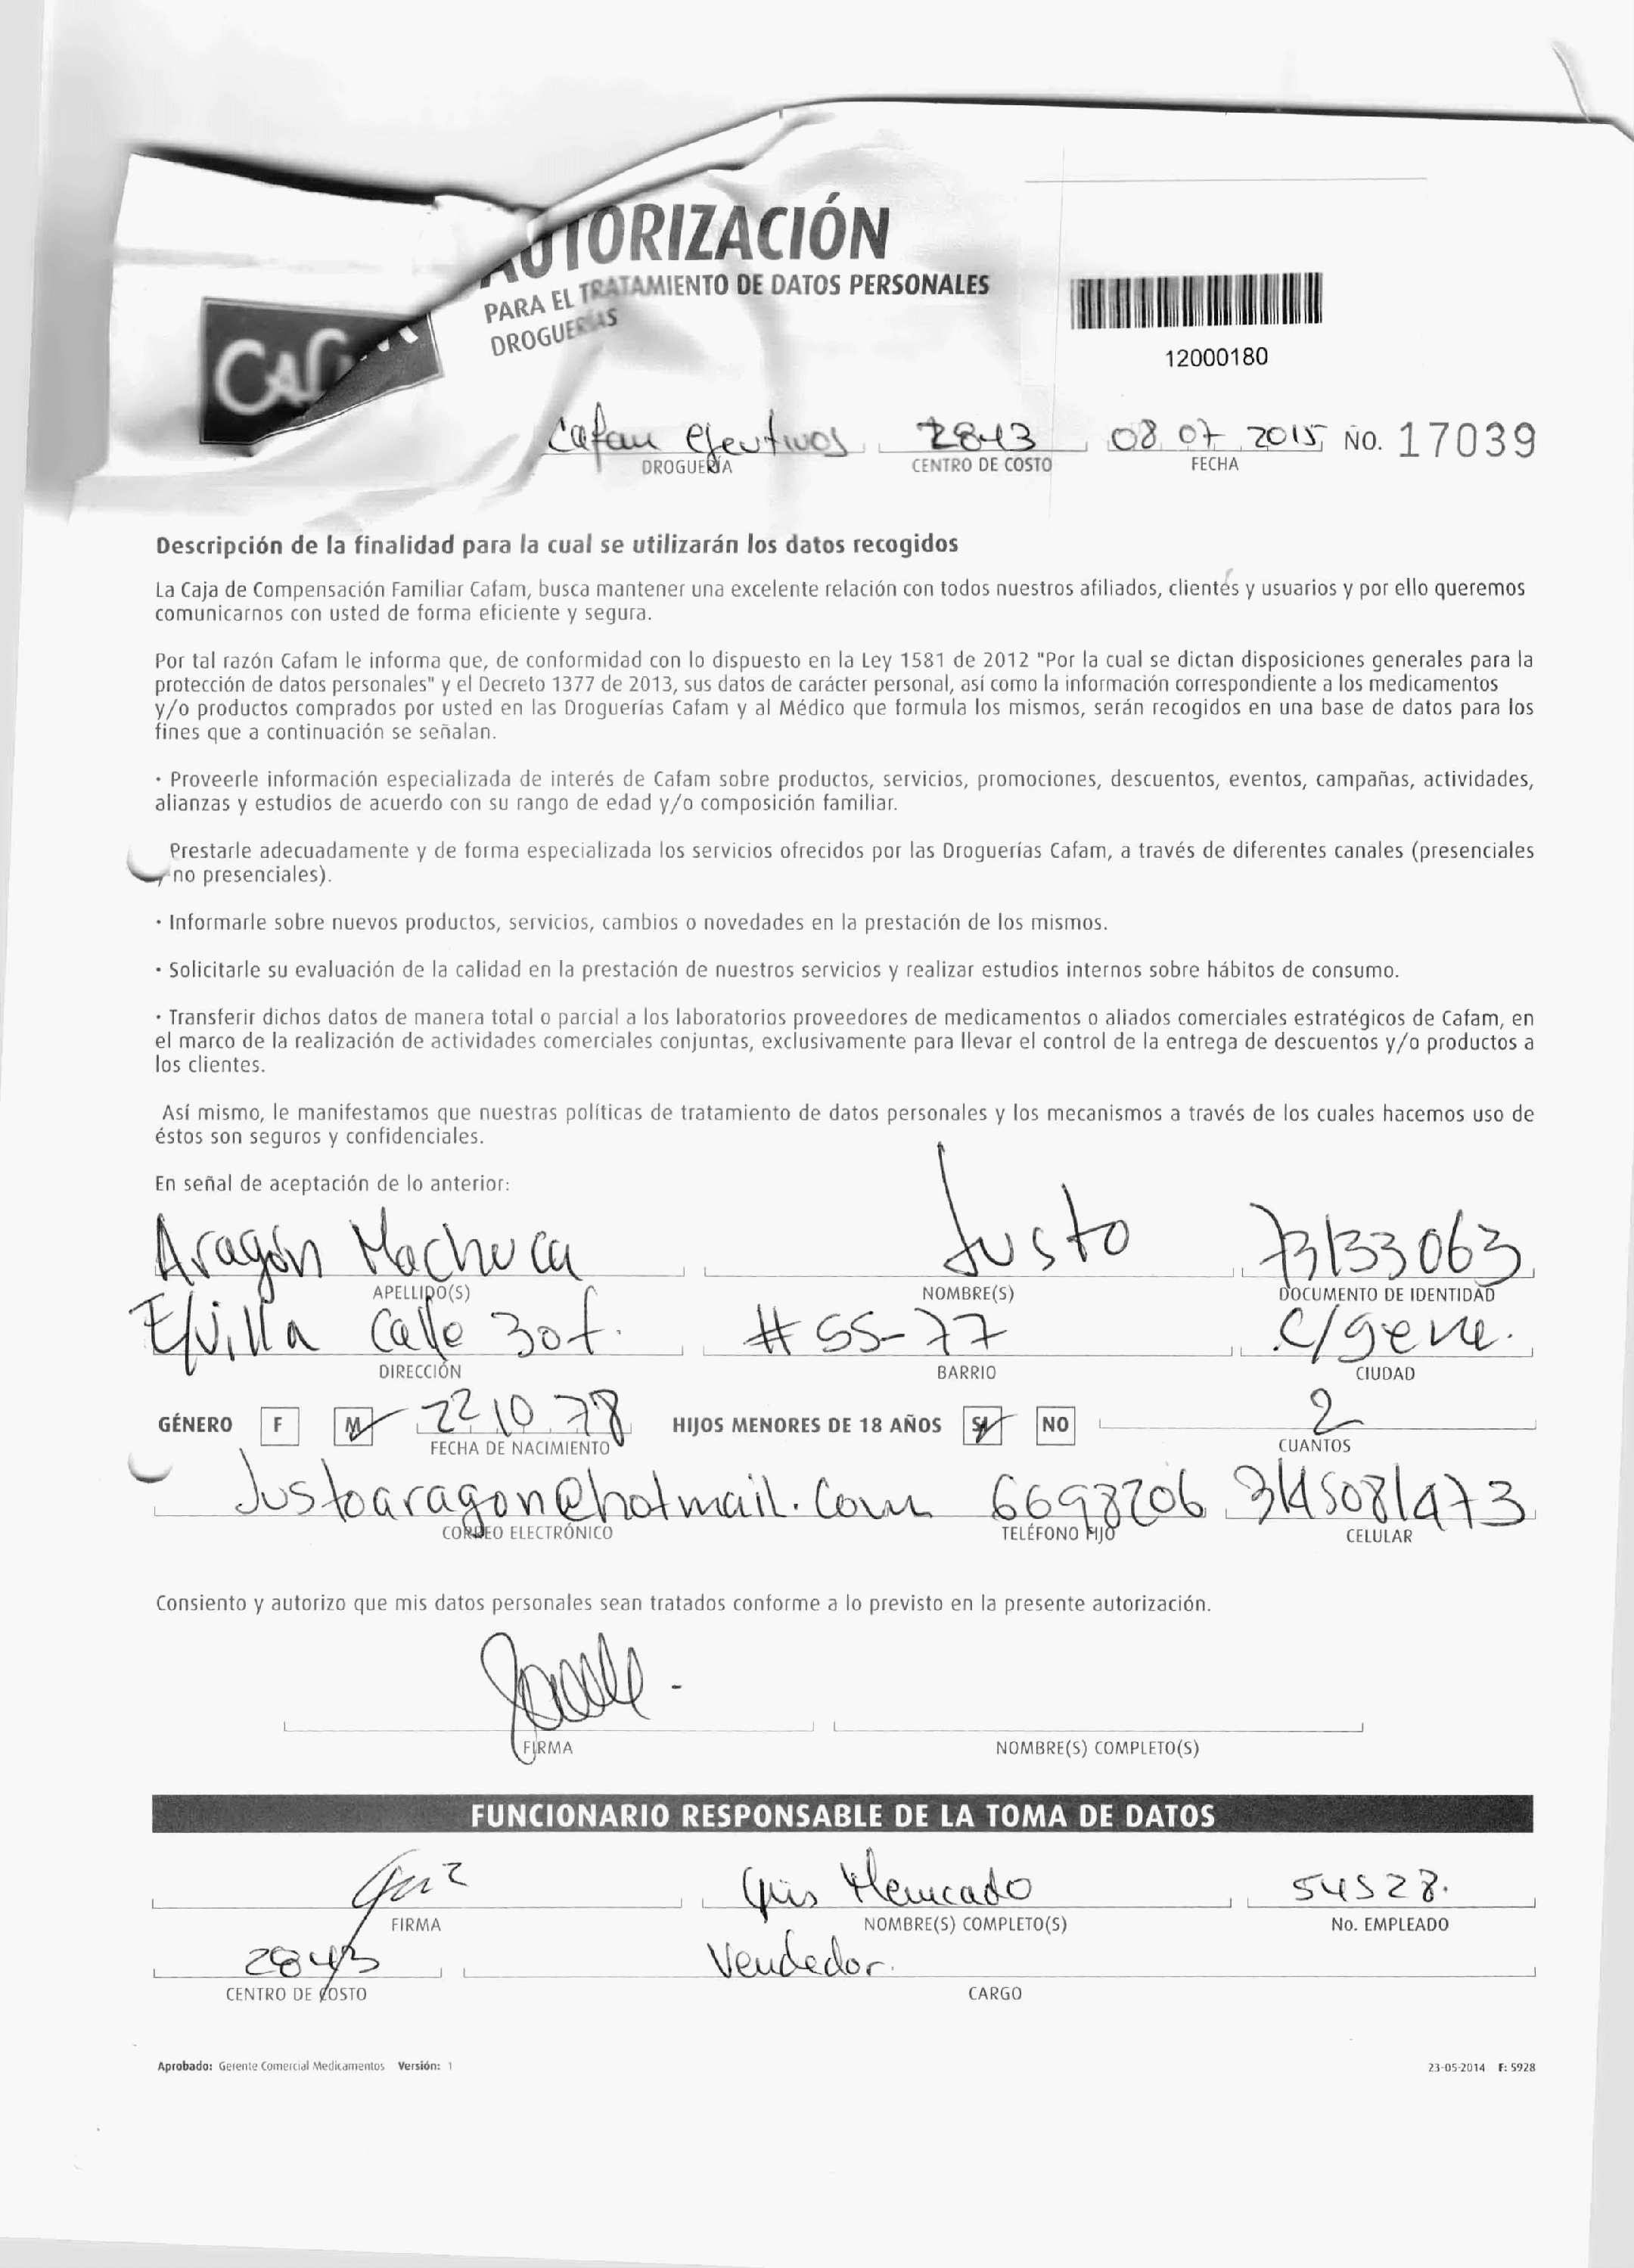 AUTORIZACIÓN
PARA EL TRATAMIENTO DE DATOS PERSONALES
DROGUERÍAS
12000180
Cafam Ejecutivos 2843 08 07 2015 No. 17039
DROGUERÍA CENTRO DE COSTO FECHA
Descripción de la finalidad para la cual se utilizarán los datos recogidos
La Caja de Compensación Familiar Cafam, busca mantener una excelente relación con todos nuestros afiliados, clientes y usuarios y por ello queremos
comunicarnos con usted de forma eficiente y segura.
Por tal razón Cafam le informa que, de conformidad con lo dispuesto en la Ley 1581 de 2012 "Por la cual se dictan disposiciones generales para la
protección de datos personales" y el Decreto 1377 de 2013, sus datos de carácter personal, así como la información correspondiente a los medicamentos
y/o productos comprados por usted en las Droguerías Cafam y al Médico que formula los mismos, serán recogidos en una base de datos para los
fines que a continuación se señalan.
· Proveerle información especializada de interés de Cafam sobre productos, servicios, promociones, descuentos, eventos, campañas, actividades,
alianzas y estudios de acuerdo con su rango de edad y/o composición familiar.
Prestarle adecuadamente y de forma especializada los servicios ofrecidos por las Droguerías Cafam, a través de diferentes canales (presenciales
y no presenciales).
· Informarle sobre nuevos productos, servicios, cambios o novedades en la prestación de los mismos.
· Solicitarle su evaluación de la calidad en la prestación de nuestros servicios y realizar estudios internos sobre hábitos de consumo.
· Transferir dichos datos de manera total o parcial a los laboratorios proveedores de medicamentos o aliados comerciales estratégicos de Cafam, en
el marco de la realización de actividades comerciales conjuntas, exclusivamente para llevar el control de la entrega de descuentos y/o productos a
los clientes.
Así mismo, le manifestamos que nuestras políticas de tratamiento de datos personales y los mecanismos a través de los cuales hacemos uso de
éstos son seguros y confidenciales.
En señal de aceptación de lo anterior:
Aragón Machuca Justo 73133063
APELLIDO(S) NOMBRE(S) DOCUMENTO DE IDENTIDAD
Calle 30 # 55-77 C/gena.
DIRECCIÓN BARRIO CIUDAD
GÉNERO F M 22 10 78 HIJOS MENORES DE 18 AÑOS SI NO 2
FECHA DE NACIMIENTO CUANTOS
Justoaragon@hotmail.com 6698206 3145081473
CORREO ELECTRÓNICO TELÉFONO FIJO CELULAR
Consiento y autorizo que mis datos personales sean tratados conforme a lo previsto en la presente autorización.
FIRMA NOMBRE(S) COMPLETO(S)
FUNCIONARIO RESPONSABLE DE LA TOMA DE DATOS
54528.
FIRMA NOMBRE(S) COMPLETO(S) No. EMPLEADO
2843 Vendedor.
CENTRO DE COSTO CARGO
Aprobado: Gerente Comercial Medicamentos Versión: 1 23-05-2014 F: 5928